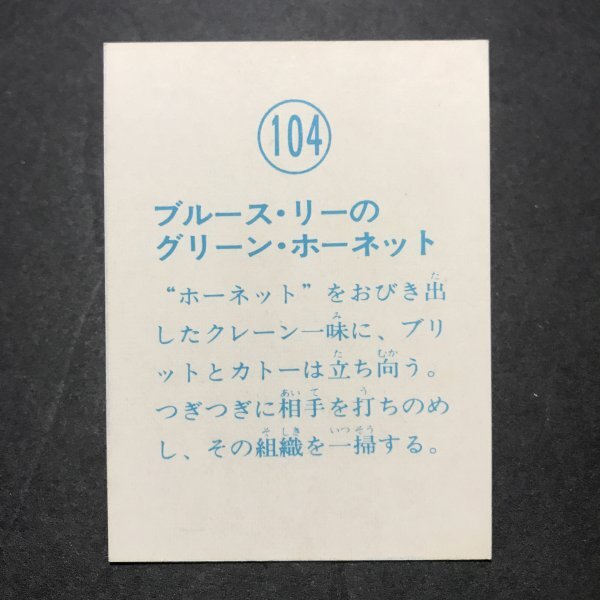 104
ブルース・リーの
グリーン・ホーネット
“ホーネット”をおびき出
したクレーン一味に、ブリ
ットとカトーは立ち向う。
つぎつぎに相手を打ちのめ
し、その組織を一掃する。